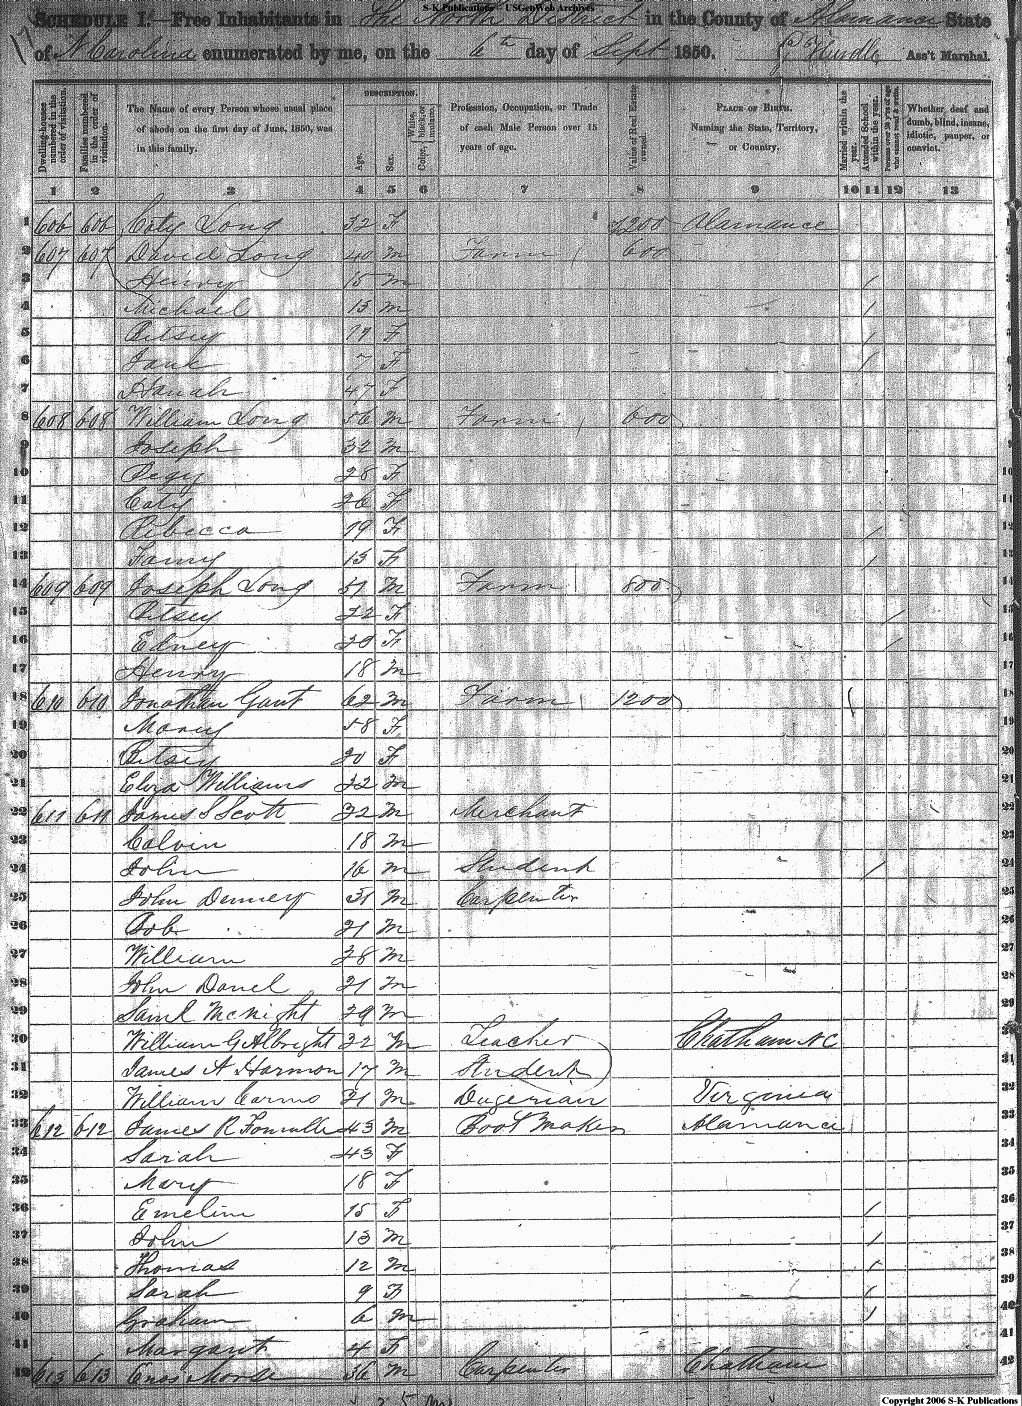 S-K Publications – USGenWeb Archives
SCHEDULE I.—Free Inhabitants in The North District in the County of Alamance State
of N Carolina enumerated by me, on the 6th day of Sept 1850. Ass't Marshal.
Dwelling-houses numbered in the order of visitation.
Families numbered in the order of visitation.
The Name of every Person whose usual place of abode on the first day of June, 1850, was in this family.
DESCRIPTION.
Age.
Sex.
White, black, or mulatto.
Color,
Profession, Occupation, or Trade of each Male Person over 15 years of age.
Value of Real Estate owned.
PLACE OF BIRTH. Naming the State, Territory, or Country.
Married within the year.
Attended School within the year.
Persons over 20 y'rs of age who cannot read & write.
Whether deaf and dumb, blind, insane, idiotic, pauper, or convict.
1 2 3 4 5 6 7 8 9 10 11 12 13
1 606 606 Caty Long 52 F Alamance
2 607 607 David Long 40 M Farm 600
3 Henry 15 M /
4 Michael 13 M /
5 Betsey F /
6 Jane 7 F /
7 Hanah 47 F
8 608 608 William Long 56 M Farm 600
9 Joseph 32 M
10 Pegy 28 F
11 Caty 26 F
12 Rebecca 19 F /
13 Fanny 13 F /
14 609 609 Joseph Long 51 M Farm 800
15 Betsey 22 F /
16 Edney 20 F /
17 Henry 18 M
18 610 610 Jonathan Gant 62 M Farm 1200
19 Mary 58 F
20 Betsey 20 F
21 Williams 22 M
22 611 611 James S Scott 32 M Merchant
23 Calvin 18 M
24 John 16 M Student /
25 John Denney 31 M Carpenter
26 Bob 21 M
27 William 28 M
28 John Daniel 21 M
29 Saml McNight 29 M
30 William G Albright 22 M Teacher Chatham NC
31 James A Harmon 17 M Student
32 William 21 M Virginia
33 612 612 James R 43 M Boot Maker Alamance
34 Sarah 43 F
35 Mary 18 F
36 Emeline 15 F /
37 John 13 M /
38 Thomas 12 M /
39 Sarah 9 F /
40 Graham 6 M /
41 Margaret 4 F
42 613 613 Enos Morse 36 M Carpenter Chatham
Copyright 2006 S-K Publications